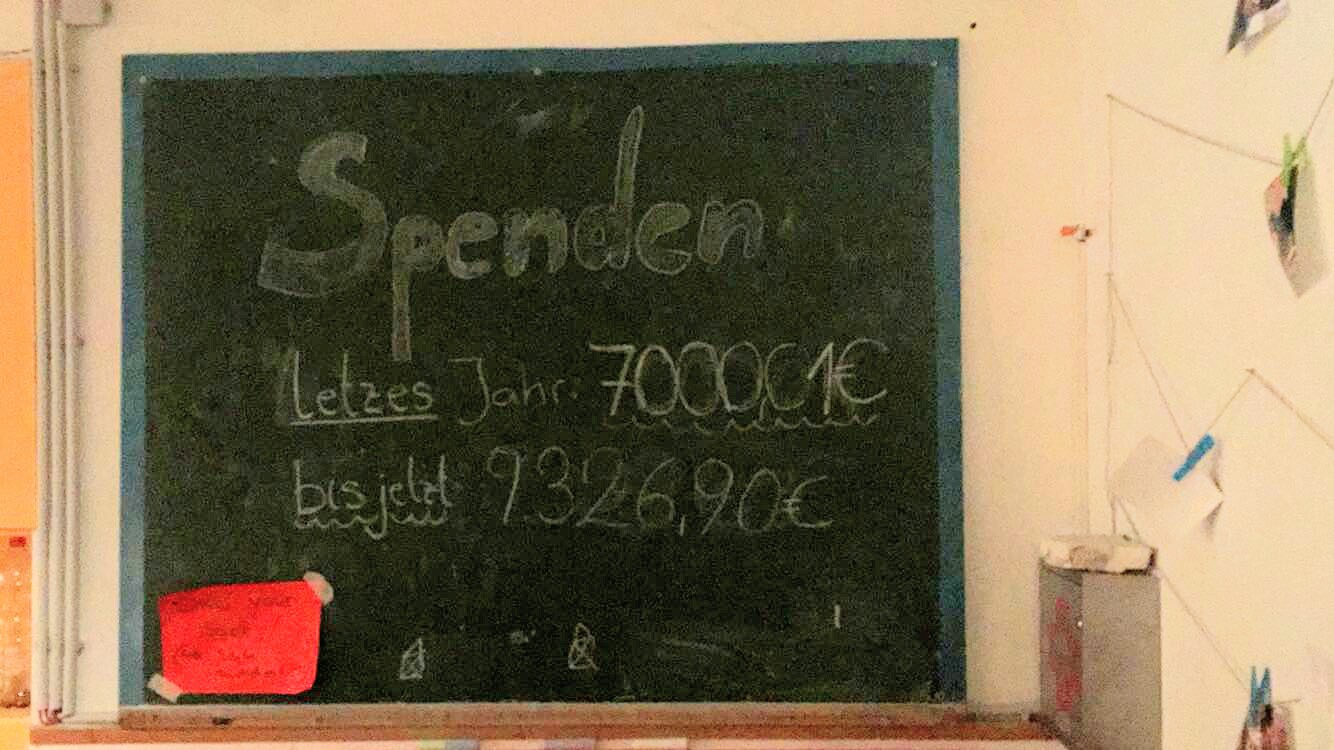 Spenden
letzes Jahr: 70000,01€
bis jetzt 9326,90€